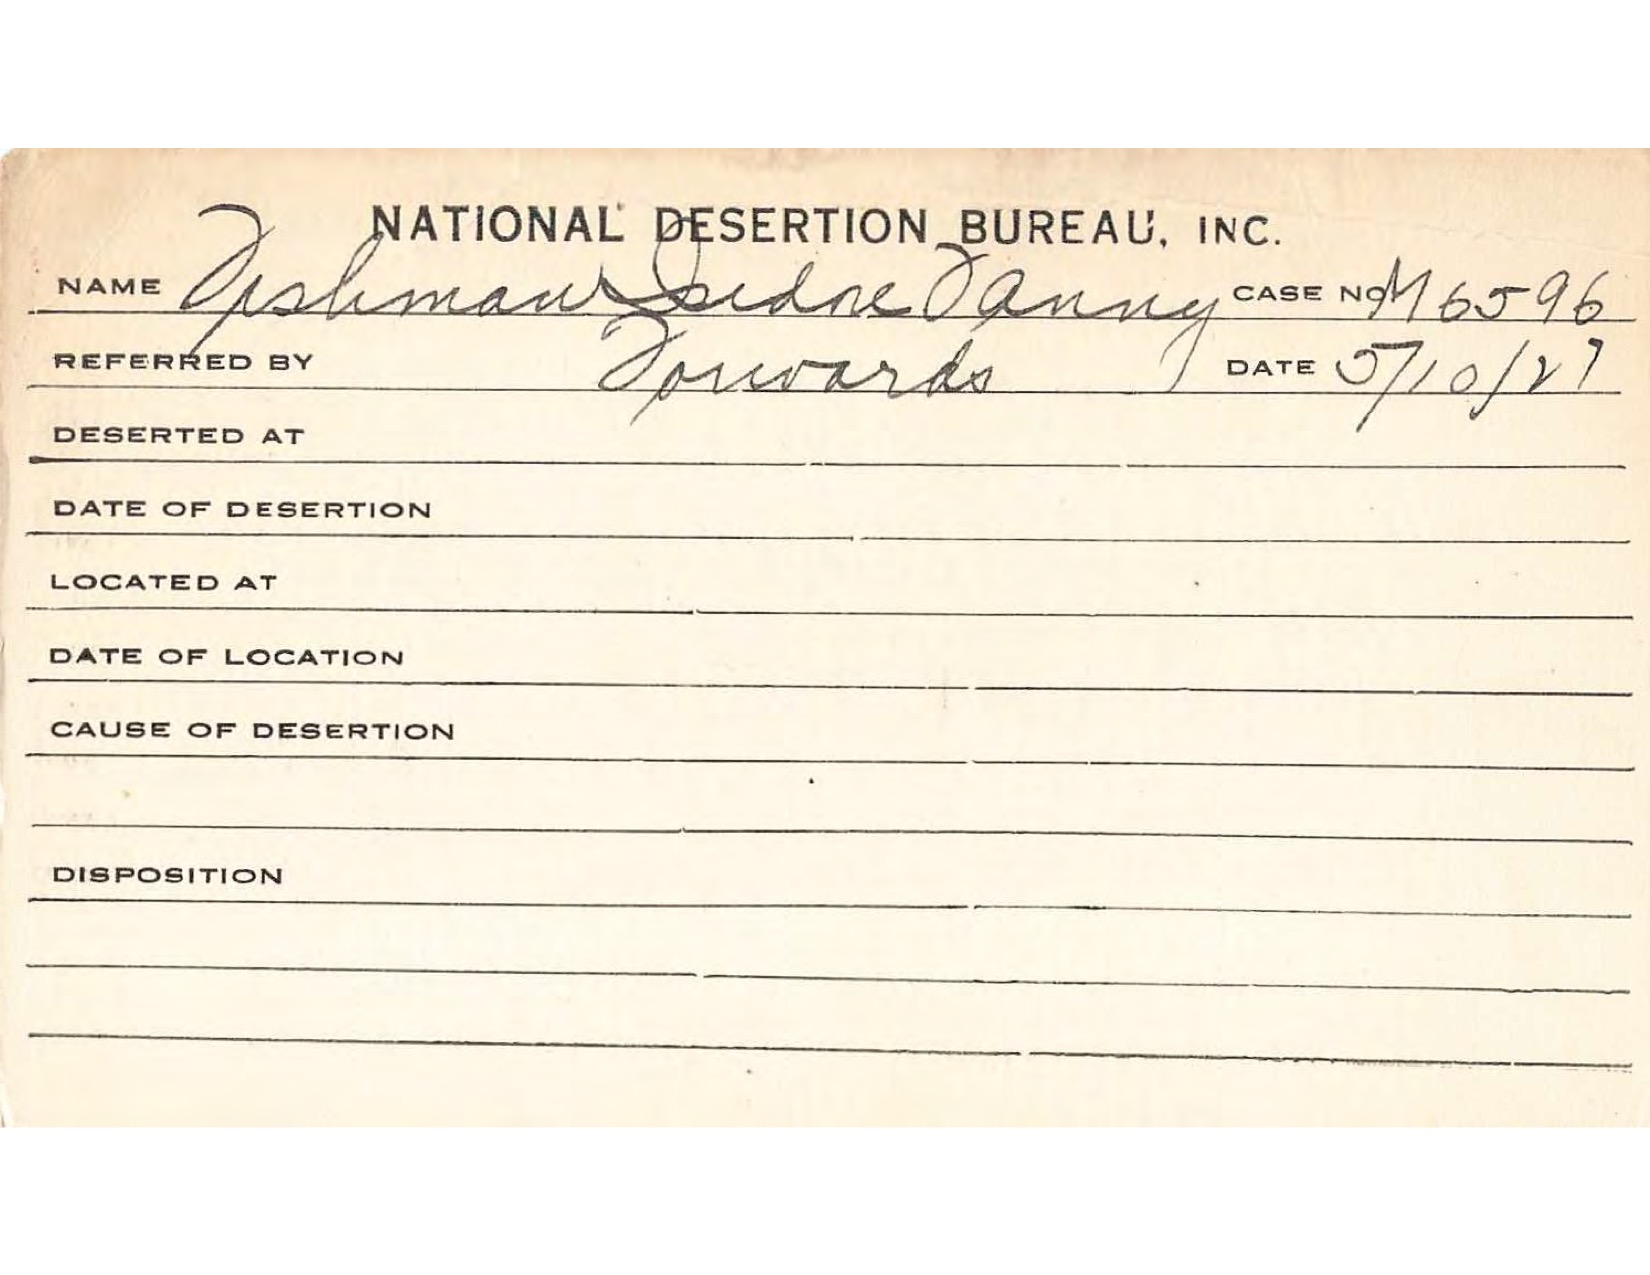 NATIONAL DESERTION BUREAU, INC.
NAME Fishman Isidore Fanny CASE NO. M6596
REFERRED BY Forwards DATE 5/10/27
DESERTED AT
DATE OF DESERTION
LOCATED AT
DATE OF LOCATION
CAUSE OF DESERTION
DISPOSITION